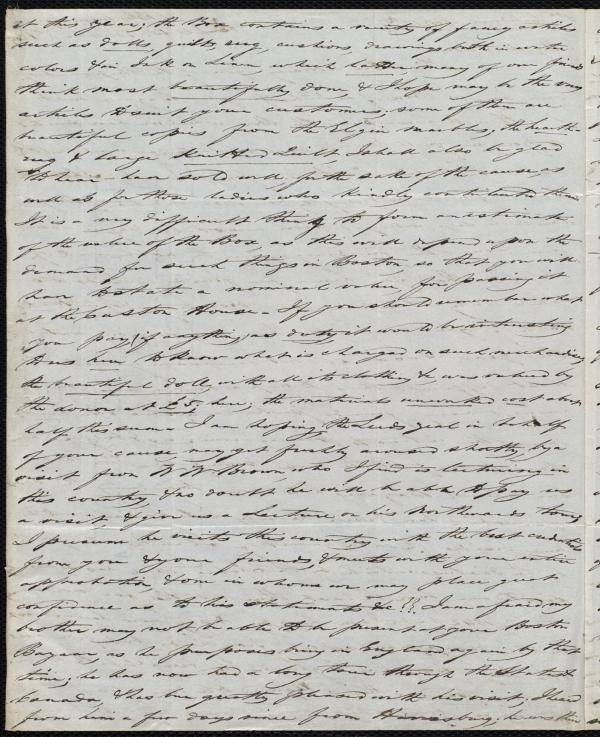 at this year; the Box contains a variety of fancy articles
such as dolls, quilts, rug, cushions drawings both in water
colors & in Ink on Linen, which latter many of our friends
think most beautifully done, & I hope may be the very
articles to suit your customers, some of them are
beautiful copies from the Elgin marbles, the hearth-
rug & large Knitted Quilt, I shall also be glad
to hear have sold well for the sake of the cause as
well as for those ladies who kindly contributed them.
It is a very difficult thing to form an estimate
of the value of the Box, as this will depend upon the
demand for such things in Boston, so that you will
have to state a nominal value for passing it
at the Custom House - If you should remember what
you pay, (if anything) as duty it would be interesting
to us here to know what is charged on such merchandise,
the beautiful doll with all its clothing &c was valued by
the donor at £5, here, the materials unworked cost about
half this sum. I am hoping the Leeds zeal in behalf
of your cause may get freshly aroused shortly by a
visit from W W Brown, who I find is lecturing in
this country, & no doubt he will be able to pay us
a visit & give us a Lecture on his Northwards Tour,
I presume he visits this country with the best credentials
from you & your friends & meets with your entire
approbation, & one in whom we may place great
confidence as to his statements &c!! I am afraid my
brother may not be able to be present at your Boston
Bazaar, as he purposes being in England again by that
time; he has now had a long tour through the States &
Canada, & has been greatly pleased with his visit, I heard
from him a few days since from Harrisburg, he was then